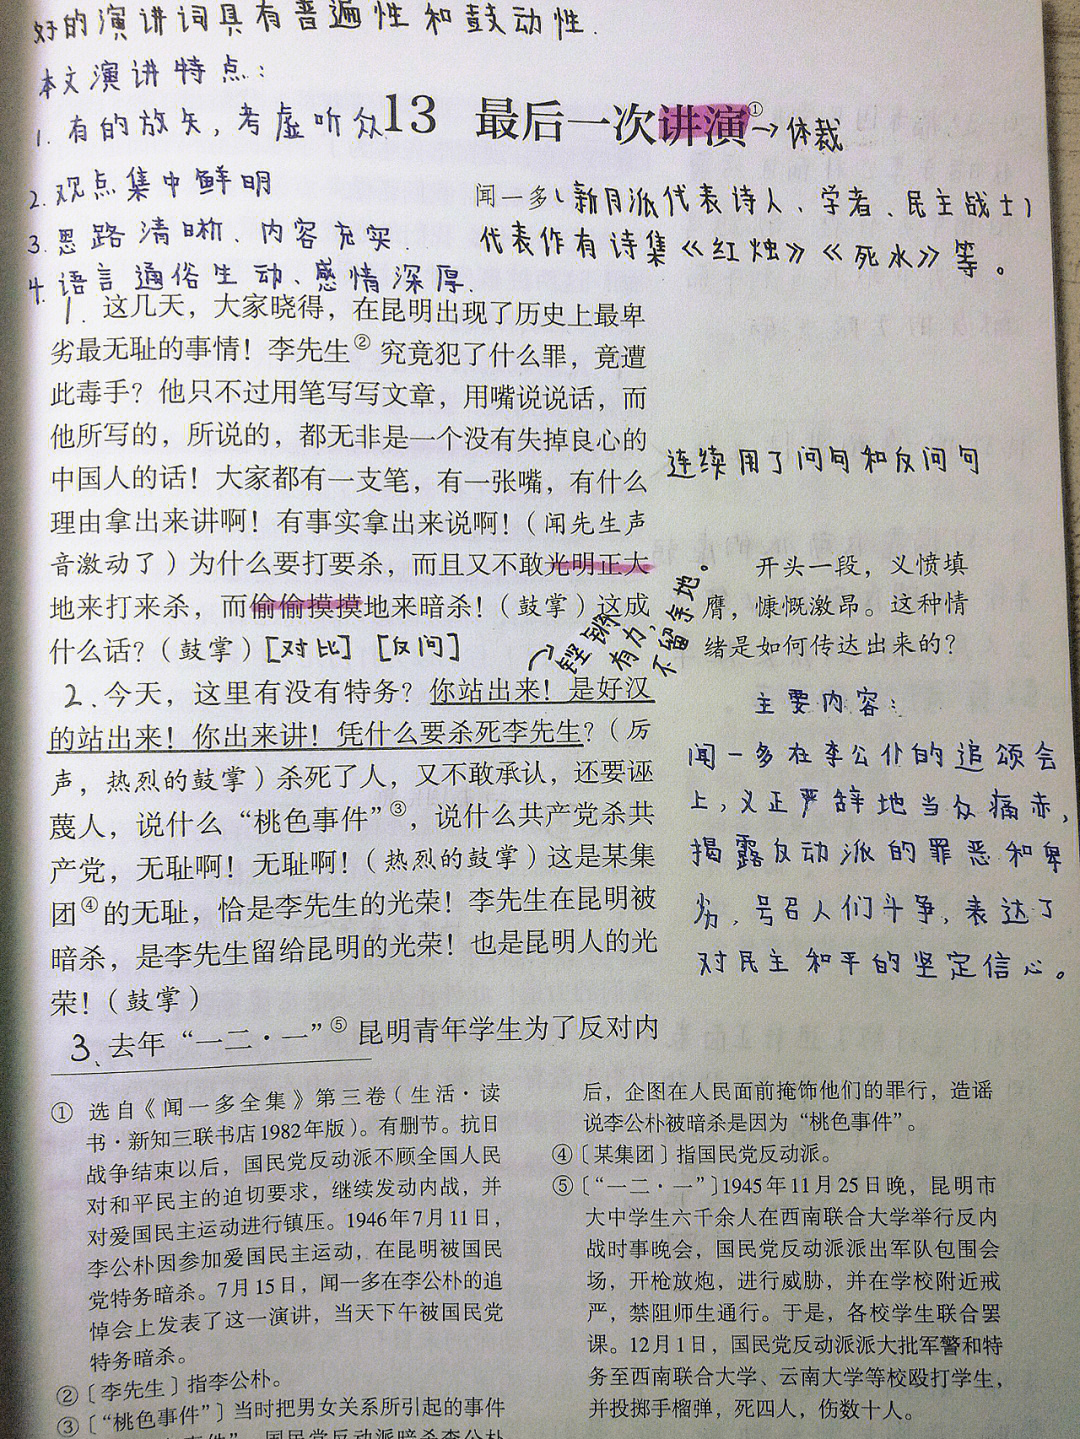 好的演讲词具有普遍性和鼓动性.
本文演讲特点：
1. 有的放矢，考虑听众
2. 观点集中鲜明
3. 思路清晰、内容充实.
4. 语言通俗生动、感情深厚.
13 最后一次讲演①→体裁
闻一多(新月派代表诗人、学者、民主战士)
代表作有诗集《红烛》《死水》等。
1. 这几天，大家晓得，在昆明出现了历史上最卑
劣最无耻的事情！李先生②究竟犯了什么罪，竟遭
此毒手？他只不过用笔写写文章，用嘴说说话，而
他所写的，所说的，都无非是一个没有失掉良心的
中国人的话！大家都有一支笔，有一张嘴，有什么
理由拿出来讲啊！有事实拿出来说啊！（闻先生声
音激动了）为什么要打要杀，而且又不敢光明正大
地来打来杀，而偷偷摸摸地来暗杀！（鼓掌）这成
什么话？（鼓掌）[对比] [反问]
连续用了问句和反问句
开头一段，义愤填
膺，慷慨激昂。这种情
绪是如何传达出来的？
铿锵
有力，
不留余地。
2、今天，这里有没有特务？你站出来！是好汉
的站出来！你出来讲！凭什么要杀死李先生？（厉
声，热烈的鼓掌）杀死了人，又不敢承认，还要诬
蔑人，说什么“桃色事件”③，说什么共产党杀共
产党，无耻啊！无耻啊！（热烈的鼓掌）这是某集
团④的无耻，恰是李先生的光荣！李先生在昆明被
暗杀，是李先生留给昆明的光荣！也是昆明人的光
荣！（鼓掌）
主要内容：
闻一多在李公仆的追颂会
上，义正严辞地当众痛赤，
揭露反动派的罪恶和卑
劣，号召人们斗争，表达了
对民主和平的坚定信心。
3、去年“一二·一”⑤昆明青年学生为了反对内
① 选自《闻一多全集》第三卷（生活·读
书·新知三联书店1982年版）。有删节。抗日
战争结束以后，国民党反动派不顾全国人民
对和平民主的迫切要求，继续发动内战，并
对爱国民主运动进行镇压。1946年7月11日，
李公朴因参加爱国民主运动，在昆明被国民
党特务暗杀。7月15日，闻一多在李公朴的追
悼会上发表了这一演讲，当天下午被国民党
特务暗杀。
②〔李先生〕指李公朴。
③〔“桃色事件”〕当时把男女关系所引起的事件
后，企图在人民面前掩饰他们的罪行，造谣
说李公朴被暗杀是因为“桃色事件”。
④〔某集团〕指国民党反动派。
⑤〔“一二·一”〕1945年11月25日晚，昆明市
大中学生六千余人在西南联合大学举行反内
战时事晚会，国民党反动派派出军队包围会
场，开枪放炮，进行威胁，并在学校附近戒
严，禁阻师生通行。于是，各校学生联合罢
课。12月1日，国民党反动派派大批军警和特
务至西南联合大学、云南大学等校殴打学生，
并投掷手榴弹，死四人，伤数十人。